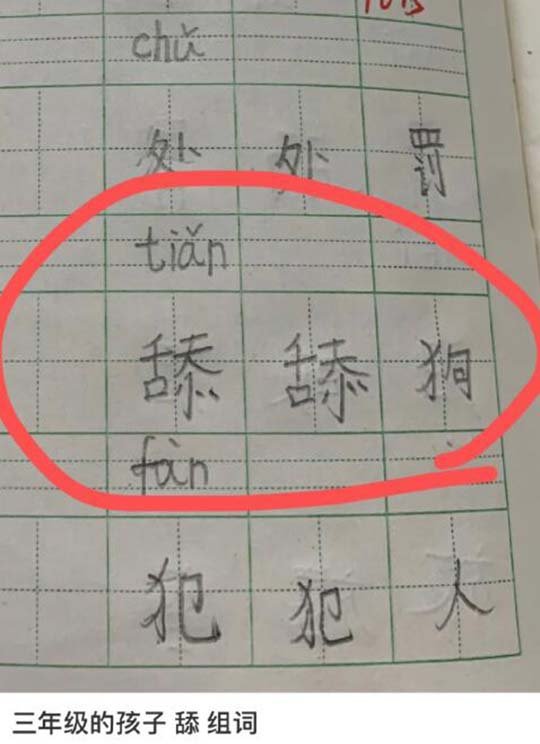 chǔ
处 处 罚
tiǎn
舔 舔 狗
fàn
犯 犯 人
三年级的孩子 舔 组词